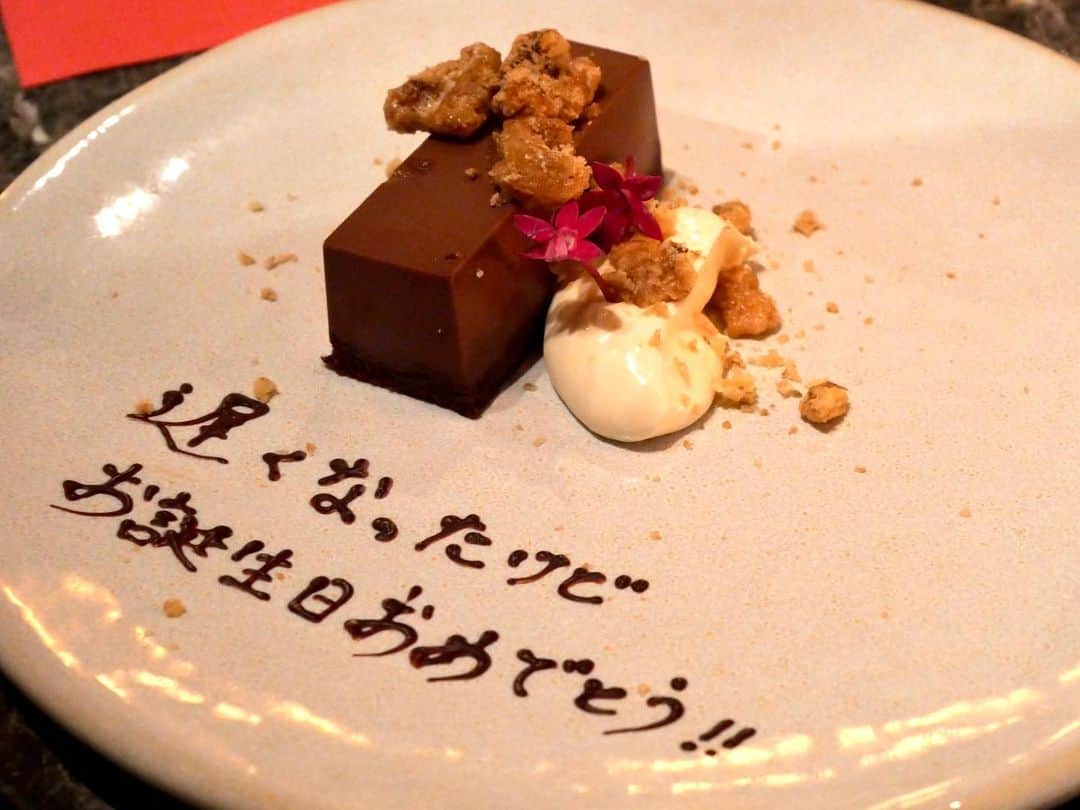 遅くなったけど
お誕生日おめでとう!!